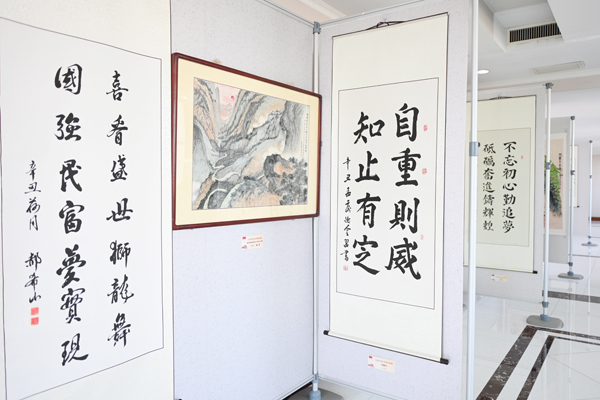 喜看盛世獅龍舞
國強民富夢實現
辛丑荷月 郝希山
自重則威
知止有定
不忘初心勤追夢
砥礪奮進鑄輝煌